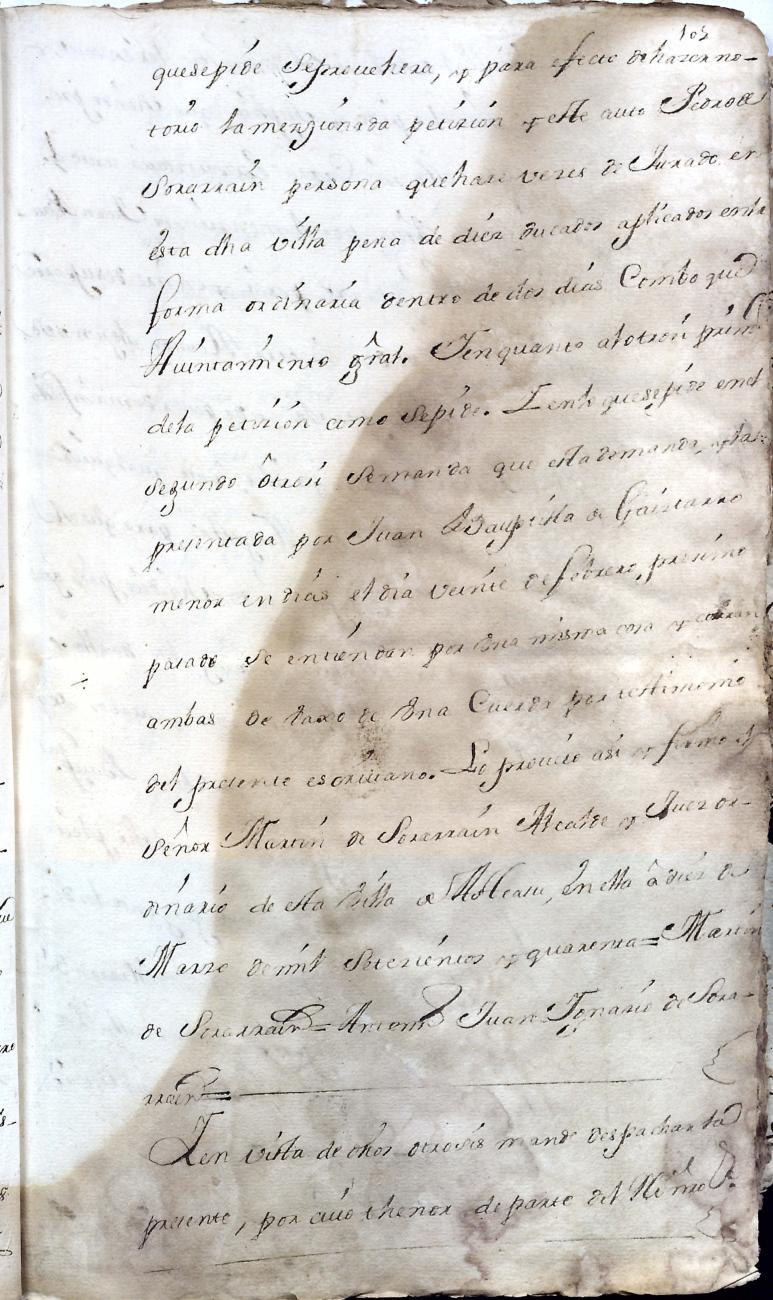 103
quesepide Seprouehera, y para efecto dehazerno-
torio lamenzionada petizion y este auto Pedro de
Sorarrain persona quehaze vezes de Jurado en
esta dha villa pena de diez ducados aplicados enla
forma ordinaria dentro de dos dias Comboque
Auintamiento gral. Ienquanto alotrosi prim
dela petizion como Sepide. Ienlo quesepide enel
segundo ôtrosi Semanda que esta demanda, y la
presentada por Juan Bauptista de Gaiztarro
menor endias el dia veinte de febrero, proximo
pasado se entiendan por vna misma cosa y corran
ambas de vaxo de vna Cuerda por testimonio
del presente escriuano. Lo proueio asi y firmo el
señor Martin de Sorarrain Alcalde y Juez or-
dinario de esta villa de Asteasu, en ella â diez de
Marzo de mil Setezientos y quarenta = Martin
de Sorarrain = Antemi Juan Ignazio de Sora-
rrain =
Ien vista de dhos otrosis mande despachar la
presente, por cuio thenor de parte del